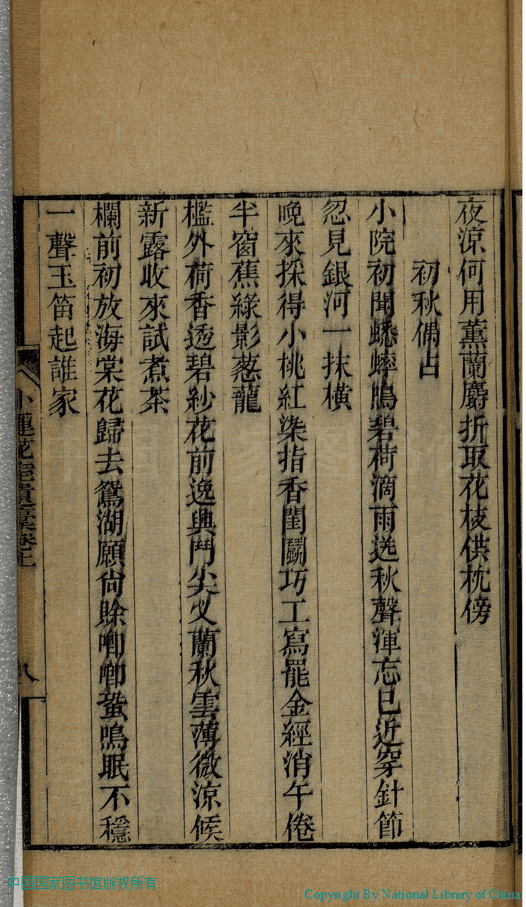 夜涼何用薰蘭麝折取花枝供枕傍
初秋偶占
小院初聞蟋蟀鳴碧荷滴雨送秋聲渾忘已近穿針節
忽見銀河一抹橫
晚來採得小桃紅染指香閨鬭巧工寫罷金經消午倦
半窗蕉綠影蔥蘢
檻外荷香透碧紗花前逸興鬥尖叉蘭秋雲薄微涼候
新露收來試煮茶
欄前初放海棠花歸去鴛湖願尙賒唧唧蛩鳴眠不穩
一聲玉笛起誰家
小蓮花室遺稾卷上
八
中国国家图书馆版权所有
Copyright By National Library of China